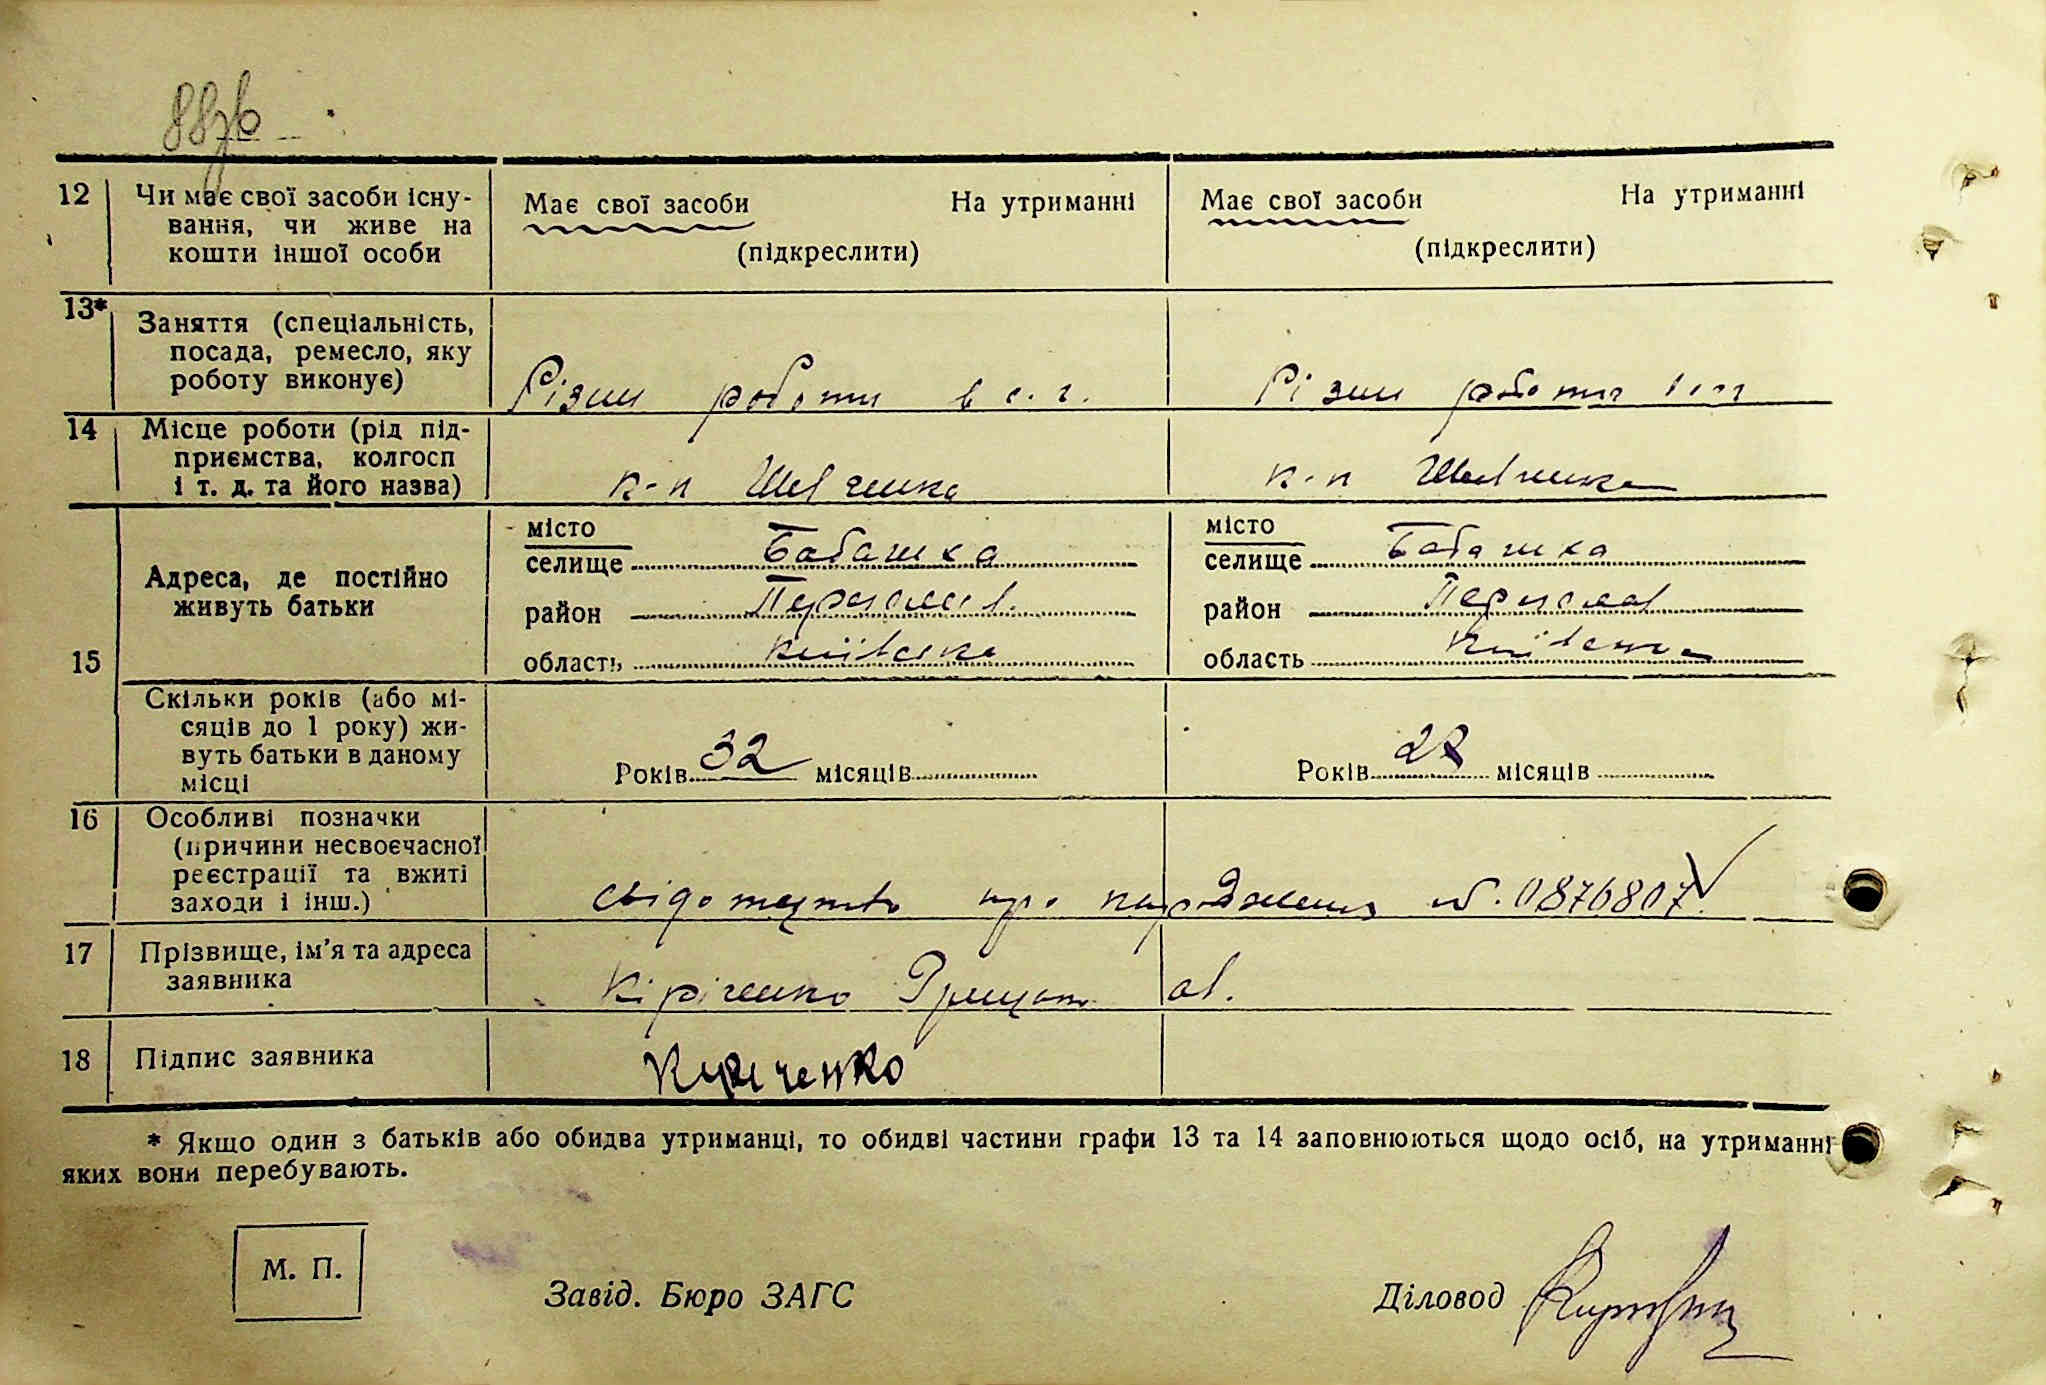 12 Чи має свої засоби існу-
вання, чи живе на
кошти іншої особи
Має свої засоби На утриманні
(підкреслити)
Має свої засоби На утриманні
(підкреслити)
13* Заняття (спеціальність,
посада, ремесло, яку
роботу виконує)
Різни роботи в с. г.
Різни роботи
14 Місце роботи (рід під-
приємства, колгосп
і т. д. та його назва)
к-п Шевченка
к-п Шевченка
15 Адреса, де постійно
живуть батьки
місто
селище Бабашка
район Переяслав.
область Київська
місто
селище Бабашка
район Переяслав
область Київська
Скільки років (або мі-
сяців до 1 року) жи-
вуть батьки в даному
місці
Років 32 місяців
Років місяців
16 Особливі позначки
(причини несвоєчасної
реєстрації та вжиті
заходи і інш.)
свідотцтво про народження № 0876807
17 Прізвище, ім'я та адреса
заявника
Кіріченко
18 Підпис заявника
Кириченко
* Якщо один з батьків або обидва утриманці, то обидві частини графи 13 та 14 заповнюються щодо осіб, на утриманні
яких вони перебувають.
М. П.
Завід. Бюро ЗАГС
Діловод